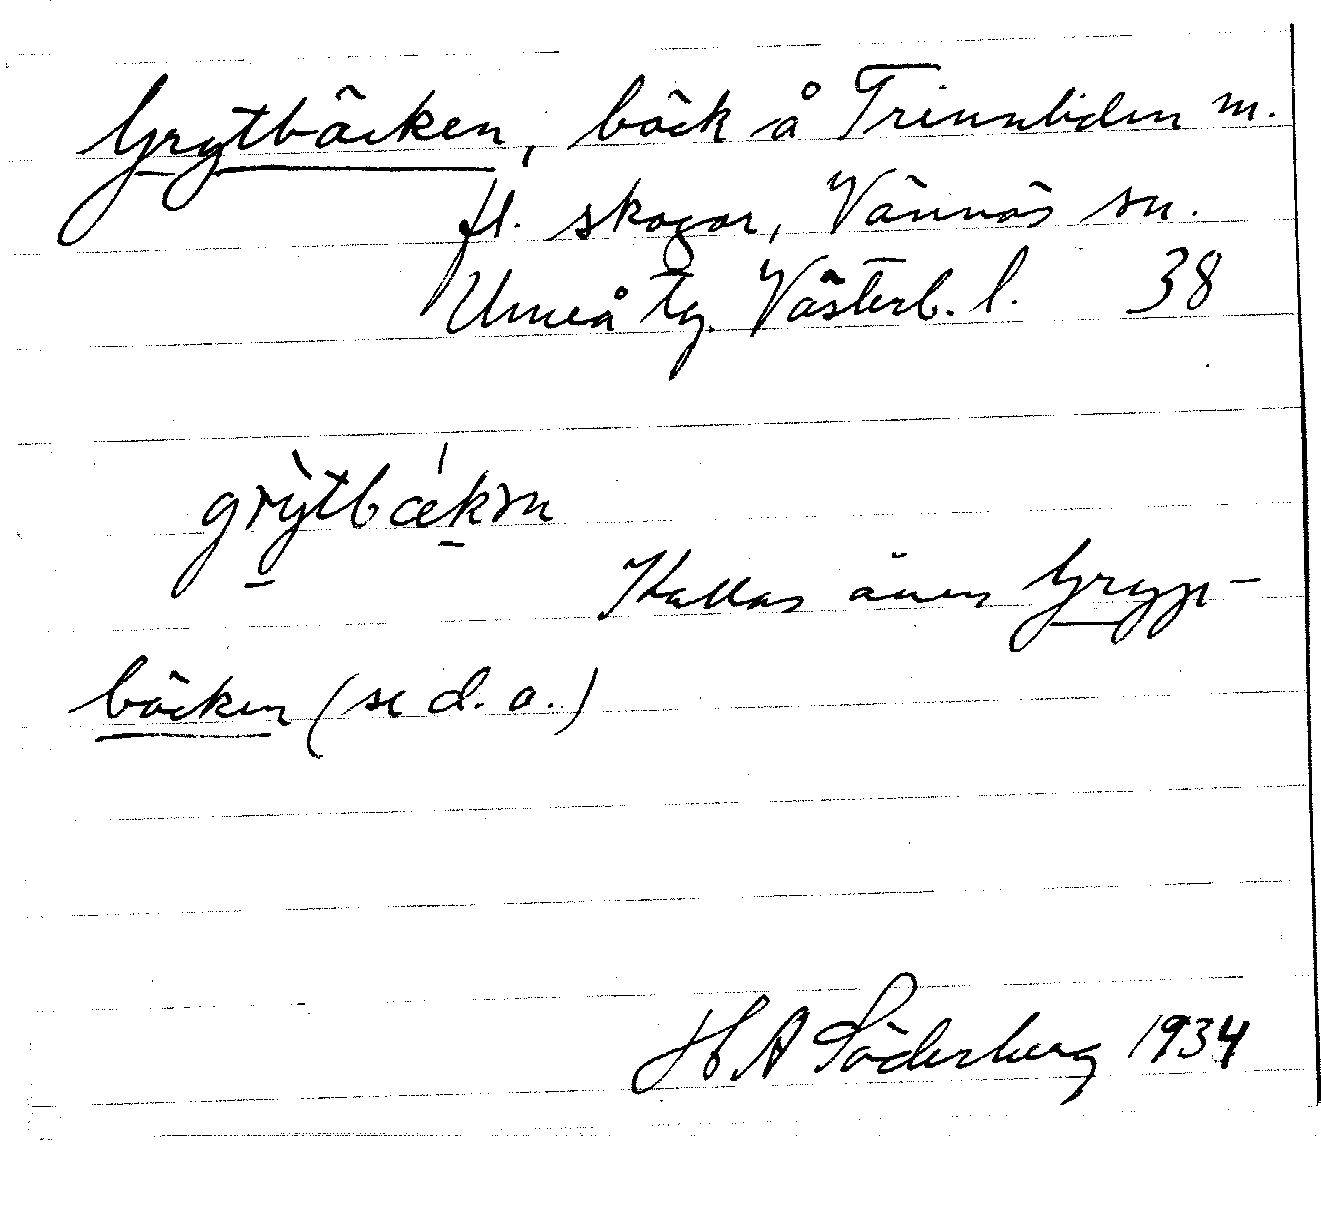 Grytbäcken, bäck å Trinnliden m.
fl. skogar, Vännäs sn.
Umeå tg. Västerb. l. 38
grỳtbæ̀kən
Kallas även Gryp-
bäcken (se d. o.)
H A Söderberg 1934